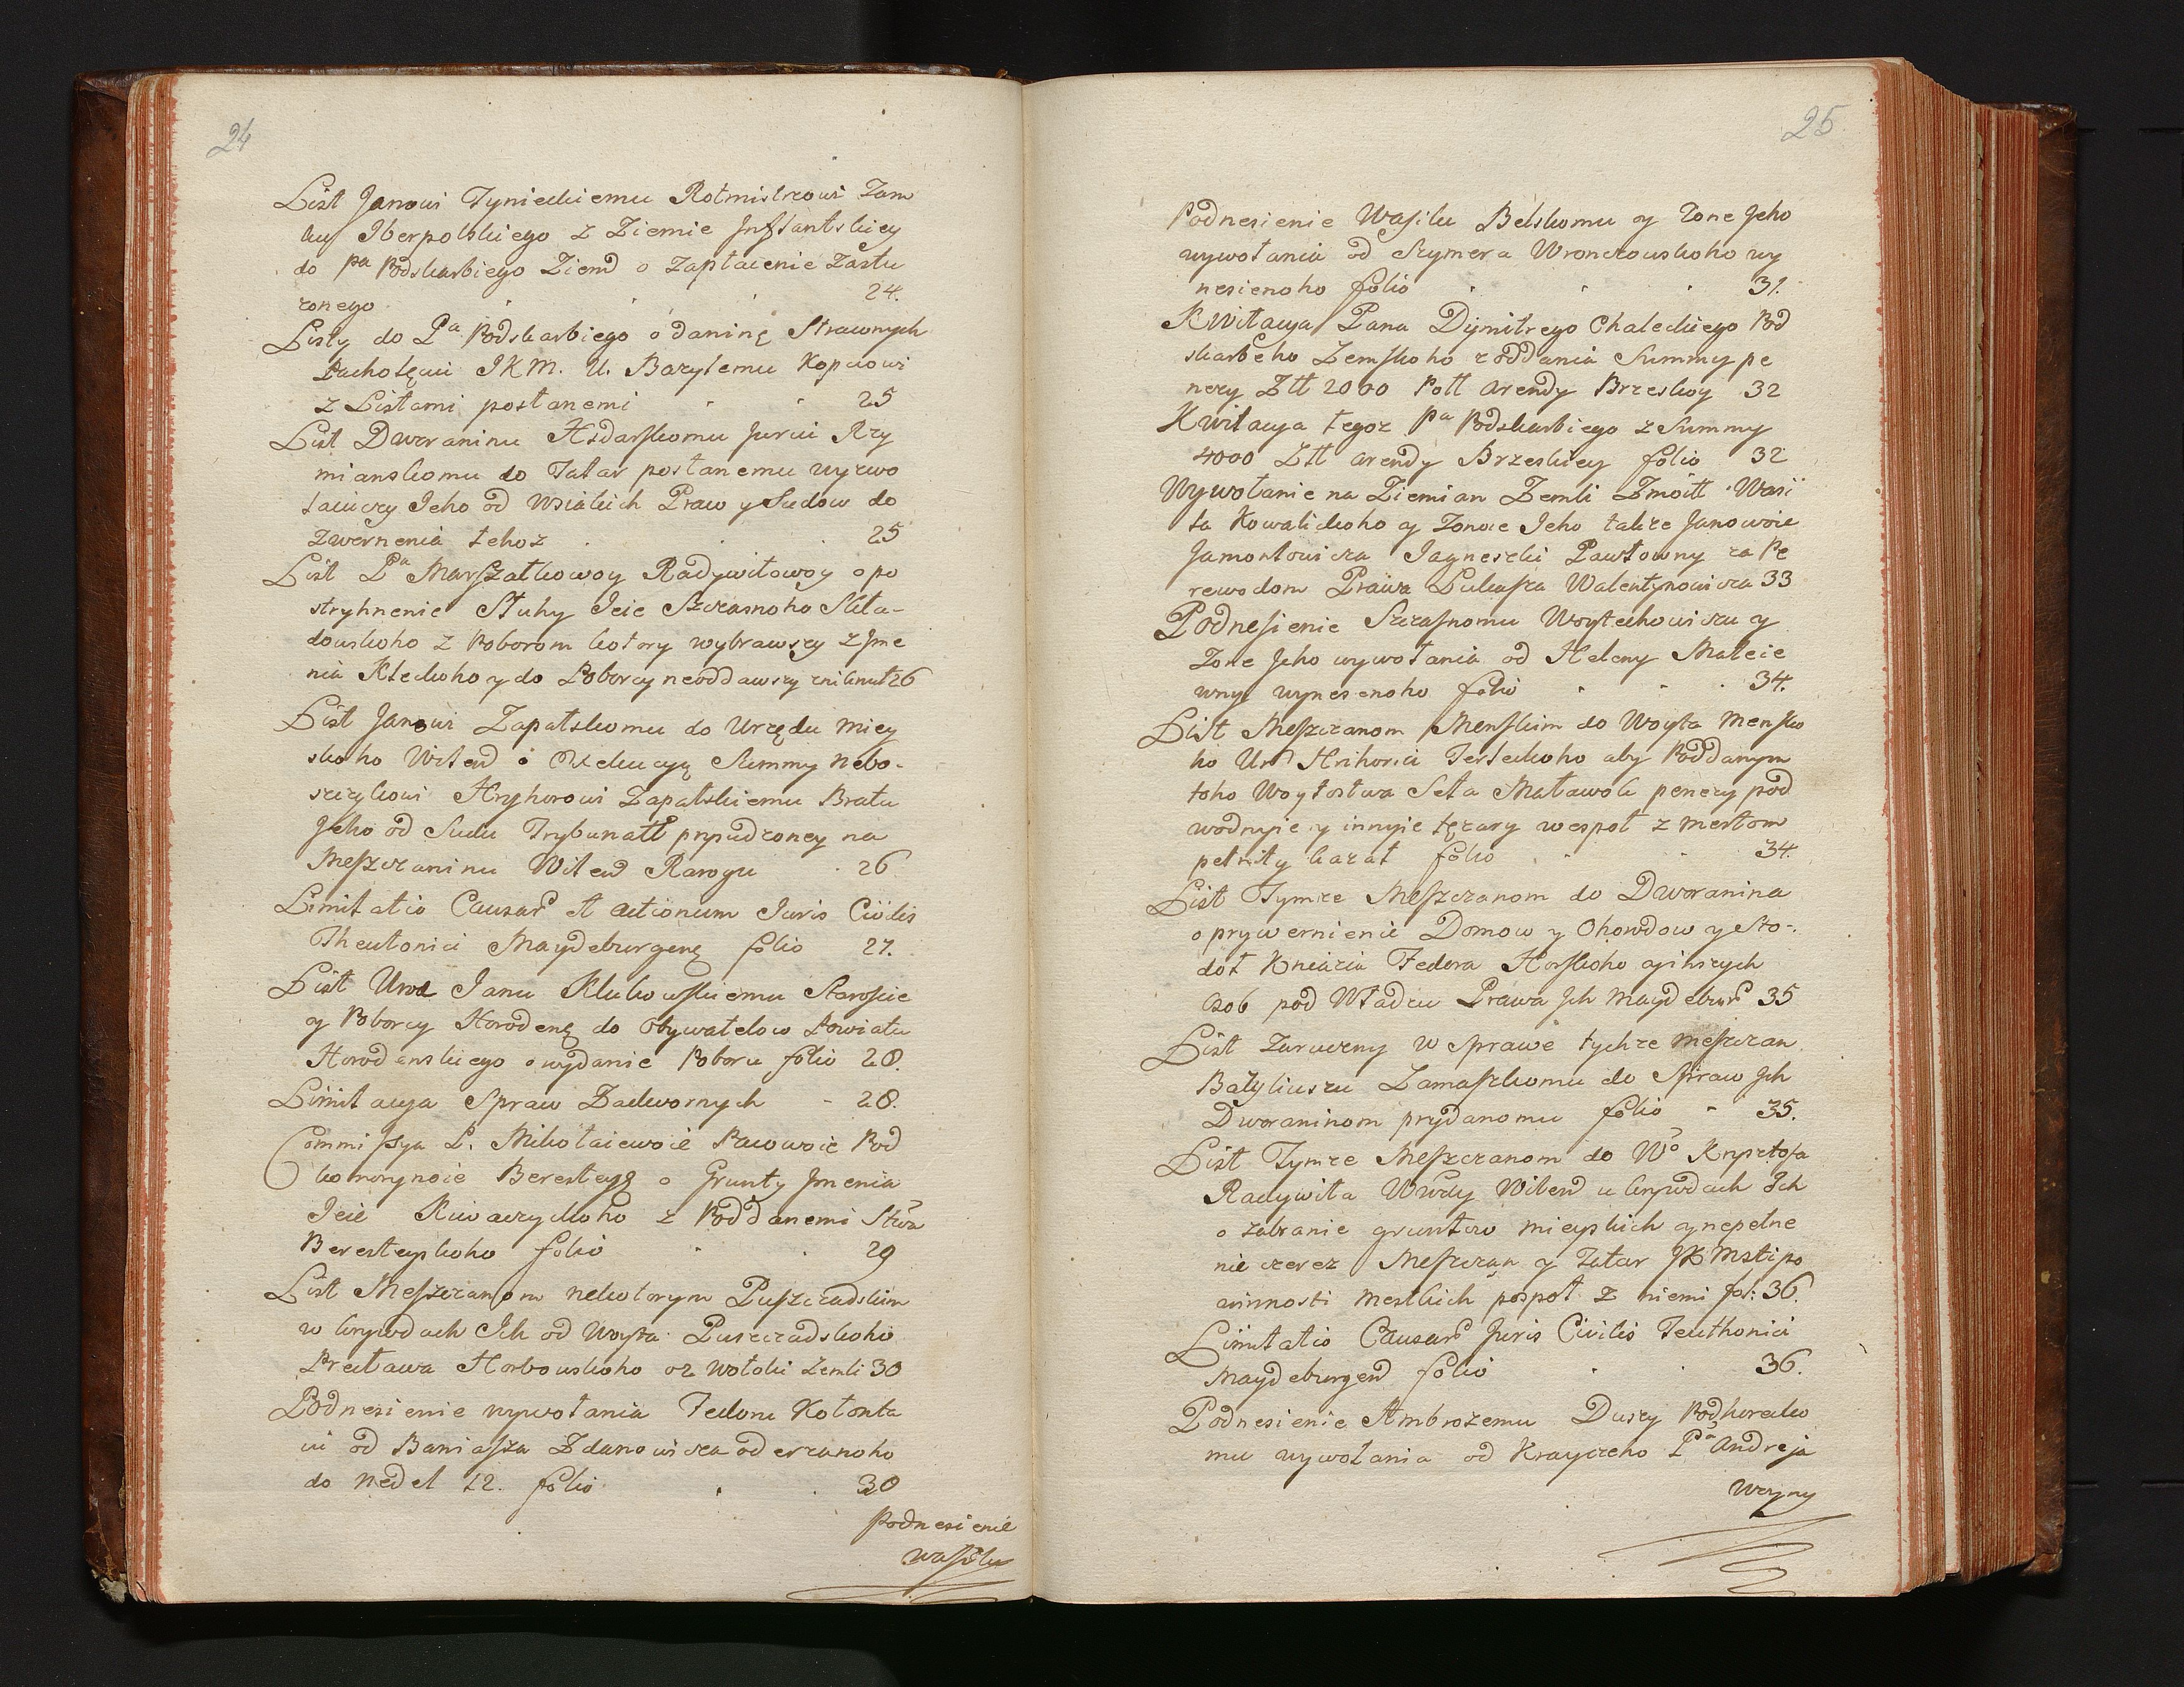 24
List Janowi Tynieckiemu Rotmistrzowi Zam
ku Iberpolskiego z Ziemie Inflantskiey
do Pa Podskarbiego Ziems o Zapłacenie Zasłu
zonego 24.
Listy do Pa Podskarbiego o daninę Strawnych
Pachołęcui IKM. U. Bazylemu Kopciowi
z Listami posłanemi 25
List Dworaninu Hsdarskomu Juriu Rzy
mianskomu do Tatar posłanemu wyzwo
laiuczy Jeho od Wsiakich Praw y Sudow do
Zwernenia tehoz 25
List Pa Marszałkowoy Radywiłowoy o po
stryhnenie Sługi Jeie Szczasnoho Skła-
dowskoho z Poborom kotory wybrawszy z Jme
nia Kleckoho y do Poborcy neoddawszy zniknuł 26
List Janowi Zapalskomu do Urzędu Miey
skoho Witeb o Exekucyą Summy Nebo-
szczykowi Hryhorowi Zapalskiemu Bratu
Jeho od Sudu Trybunall prysudzoney na
Meszczaninu Witeb Rarogu 26
Limitatio Causar et actionum Juris Civilis
Theutonici Maydeburgenę folio 27.
List Urod Janu Klukowskiemu Staroscie
y Poborcy Horodenę do Obywatelow Powiatu
Horodenskiego o wydanie Poboru folio 28.
Limitacya Spraw Zadwornych - 28.
Commissya P. Mikołaiewoie Pacowoie Pod
komorynoie Beresteyę o Grunty Jmenia
Jeie z Poddanemi Stwa
Beresteyskoho folio 29
List Meszczanom nekotorym Puszczadskim
w krywdach Ich od Woyta Puszczadskoho
Horbowskoho oz Wołoki Zemli 30
Podnesienie wywołania Fedoru Kołonta
iu od Baniasza Zdanowicza oderzanoho
do Nedel 12. folio 30
Podnesienie
Wasilu
25.
Podnesienie Wasilu Belskomu y Zone Jeho
wywołania od Szymera Wronczowskoho wy
nesienoho folio 31.
Kwitacya Pana Dymitrego Chaleckiego Pod
skarbeho Zemskoho z oddania Summy pe
nezy Zll 2000 Poll arendy Brzeskoy 32
Kwitacya tegoz Pa Podskarbiego z Summy
4000 Zll arendy Brzeskiey folio 32
Wywołanie na Ziemian Zemli Zmoitt Wasi
la Kowalickoho y Zonoie Jeho takze Janowoie
Jamontowicza Jagneszki Pawłowny za Pe
rewodom Prawa Lukasza Walentynowicza 33
Podnesienie Szczasnomu Woytechowiczu y
Zone Jeho wywołania od Heleny Mateie
wny wynesenoho folio 34.
List Meszczanom Menskim do Woyta Mensko
ho Urd Hrihoria Terleckoho aby Poddanym
toho Woytostwa Seła Matawok penezy pod
wodnyie y innyie tęzary wespoł z mestom
pełnity kazał folio 34.
List Tymze Meszczanom do Dworanina
o prywernienie Domow y Ohorodow y Sto-
doł Kniazia Fedora Horskoho y inszych
Osob pod Władzu Prawa Ich Maydebur 35
List Zaruczny w Sprawe tychze Meszczan
Bazyliuszu Zamaszkomu do Spraw Ich
Dworaninom prydanomu folio - 35.
List Tymze Meszczanom do Wo Krysztofa
Radywiła Wwdy Wilens u krywdach Ich
o zabranie gruntow mieyskich y nepełne
nie czerez Meszczan y Tatar JK Msti po
winnosti mestkich pospoł z niemi fol: 36.
Limitatio Causar Juris Civilis Teuthonici
Maydeburgens folio 36.
Podnesienie Ambrozemu Duszy Podhorecko
mu wywołania od Krayczeho Pa Andreja
Woyny